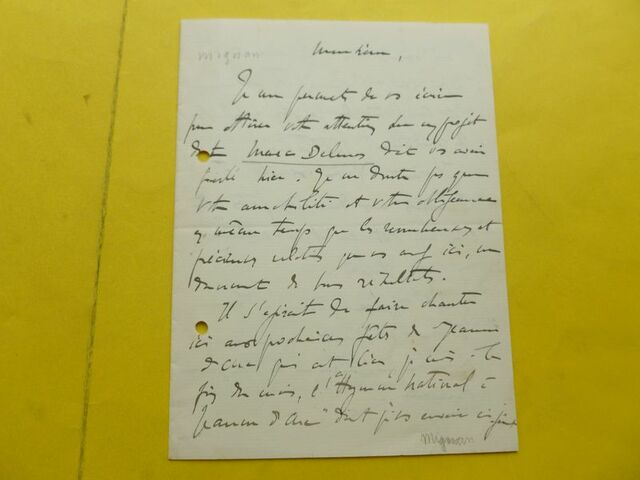 mignan
Monsieur,
Je me permets de vs écrire
pour attirer votre attention sur un projet
dont Marc Delmas doit vs avoir
parlé hier. Je ne doute pas que
votre amabilité et votre obligeance
en même temps que les nombreuses et
précieuses relations que vs avez ici, me
donnent de bons résultats.
Il s'agirait de faire chanter
ici aux prochaines fêtes de Jeanne
d'Arc qui ont lieu, je crois la
fin du mois, l'"Hymne National à
Jeanne d'Arc" dont je vs envoie ci-joint
Mignan